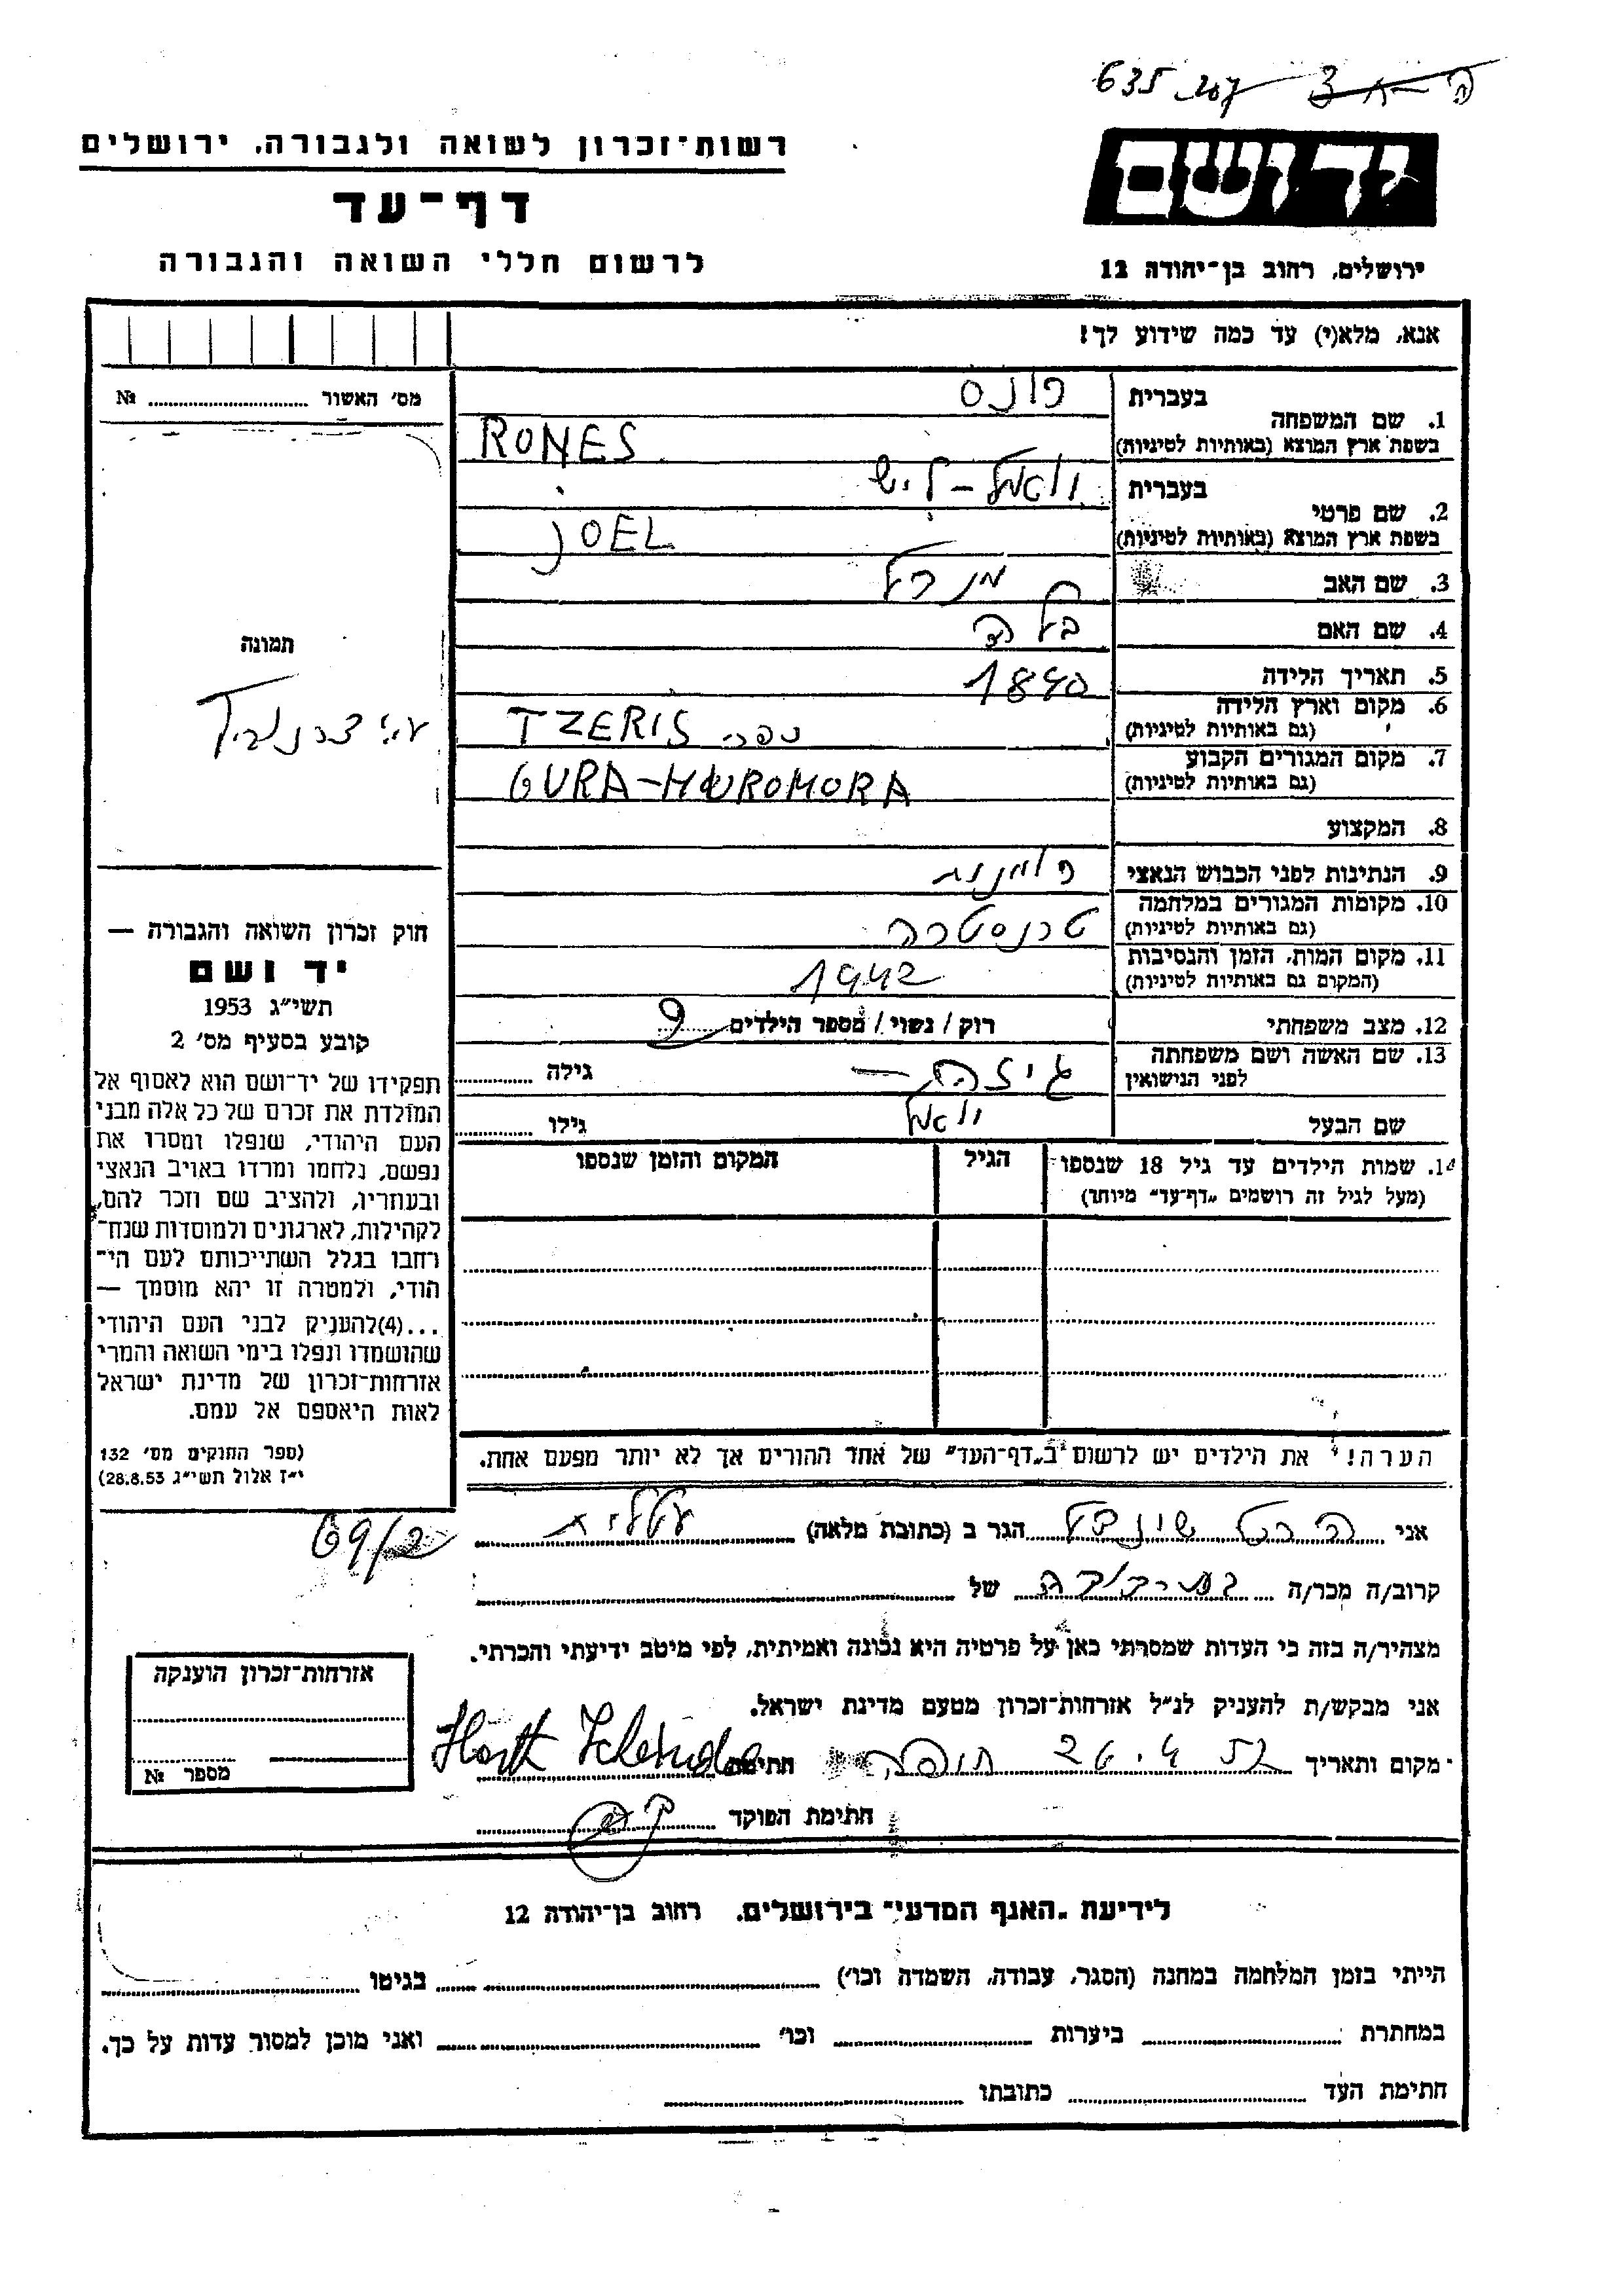 635 207
רשות־זכרון לשואה ולגבורה, ירושלים
דף־עד
לרשום חללי השואה והגבורה
יד ושם
ירושלים, רחוב בן־יהודה 12
אנא, מלא(י) עד כמה שידוע לך!
מס׳ האשור ........ №
1. שם המשפחה
בעברית רונס
בשפת ארץ המוצא (באותיות לטיניות) RONES
2. שם פרטי
בעברית יואל - ליש
בשפת ארץ המוצא (באותיות לטיניות) JOEL
3. שם האב מנדל
4. שם האם בלה
5. תאריך הלידה 1840
6. מקום וארץ הלידה
(גם באותיות לטיניות) TZERIS
7. מקום המגורים הקבוע
(גם באותיות לטיניות) GURA-HUROMORA
8. המקצוע
9. הנתינות לפני הכבוש הנאצי רומנית
10. מקומות המגורים במלחמה
(גם באותיות לטיניות) טרנסטריה
11. מקום המות, הזמן והנסיבות
(המקום גם באותיות לטיניות) 1942
12. מצב משפחתי רוק / נשוי / מספר הילדים 9
13. שם האשה ושם משפחתה
לפני הנישואין גיזה — גילה ........
שם הבעל יואל גילו ........
14. שמות הילדים עד גיל 18 שנספו
(מעל לגיל זה רושמים „דף־עד” מיוחד)
הגיל
המקום והזמן שנספו
הערה! את הילדים יש לרשום ב„דף־העד” של אחד ההורים אך לא יותר מפעם אחת.
תמונה
חוק זכרון השואה והגבורה —
יד ושם
תשי״ג 1953
קובע בסעיף מס׳ 2
תפקידו של יד־ושם הוא לאסוף אל
המולדת את זכרם של כל אלה מבני
העם היהודי, שנפלו ומסרו את
נפשם, נלחמו ומרדו באויב הנאצי
ובעוזריו, ולהציב שם וזכר להם,
לקהילות, לארגונים ולמוסדות שנח־
רחבו בגלל השתייכותם לעם הי־
הודי, ולמטרה זו יהא מוסמך —
...(4)להעניק לבני העם היהודי
שהושמדו ונפלו בימי השואה והמרי
אזרחות־זכרון של מדינת ישראל
לאות היאספם אל עמם.
(ספר החוקים מס׳ 132
י״ז אלול תשי״ג 28.8.53)
69/2
אני הרט שינדל הגר ב (כתובת מלאה) עתלית
קרוב/ה מכר/ה ........ של ........
מצהיר/ה בזה כי העדות שמסרתי כאן על פרטיה היא נכונה ואמיתית, לפי מיטב ידיעתי והכרתי.
אני מבקש/ת להעניק לנ״ל אזרחות־זכרון מטעם מדינת ישראל.
מקום ותאריך חיפה חתימה
חתימת הפוקד
אזרחות־זכרון הוענקה
מספר №
לידיעת „האגף המדעי” בירושלים, רחוב בן־יהודה 12
הייתי בזמן המלחמה במחנה (הסגר, עבודה, השמדה וכו׳) ........ בגיטו ........
במחתרת ........ ביערות ........ וכו׳ ........ ואני מוכן למסור עדות על כך.
חתימת העד ........ כתובתו ........